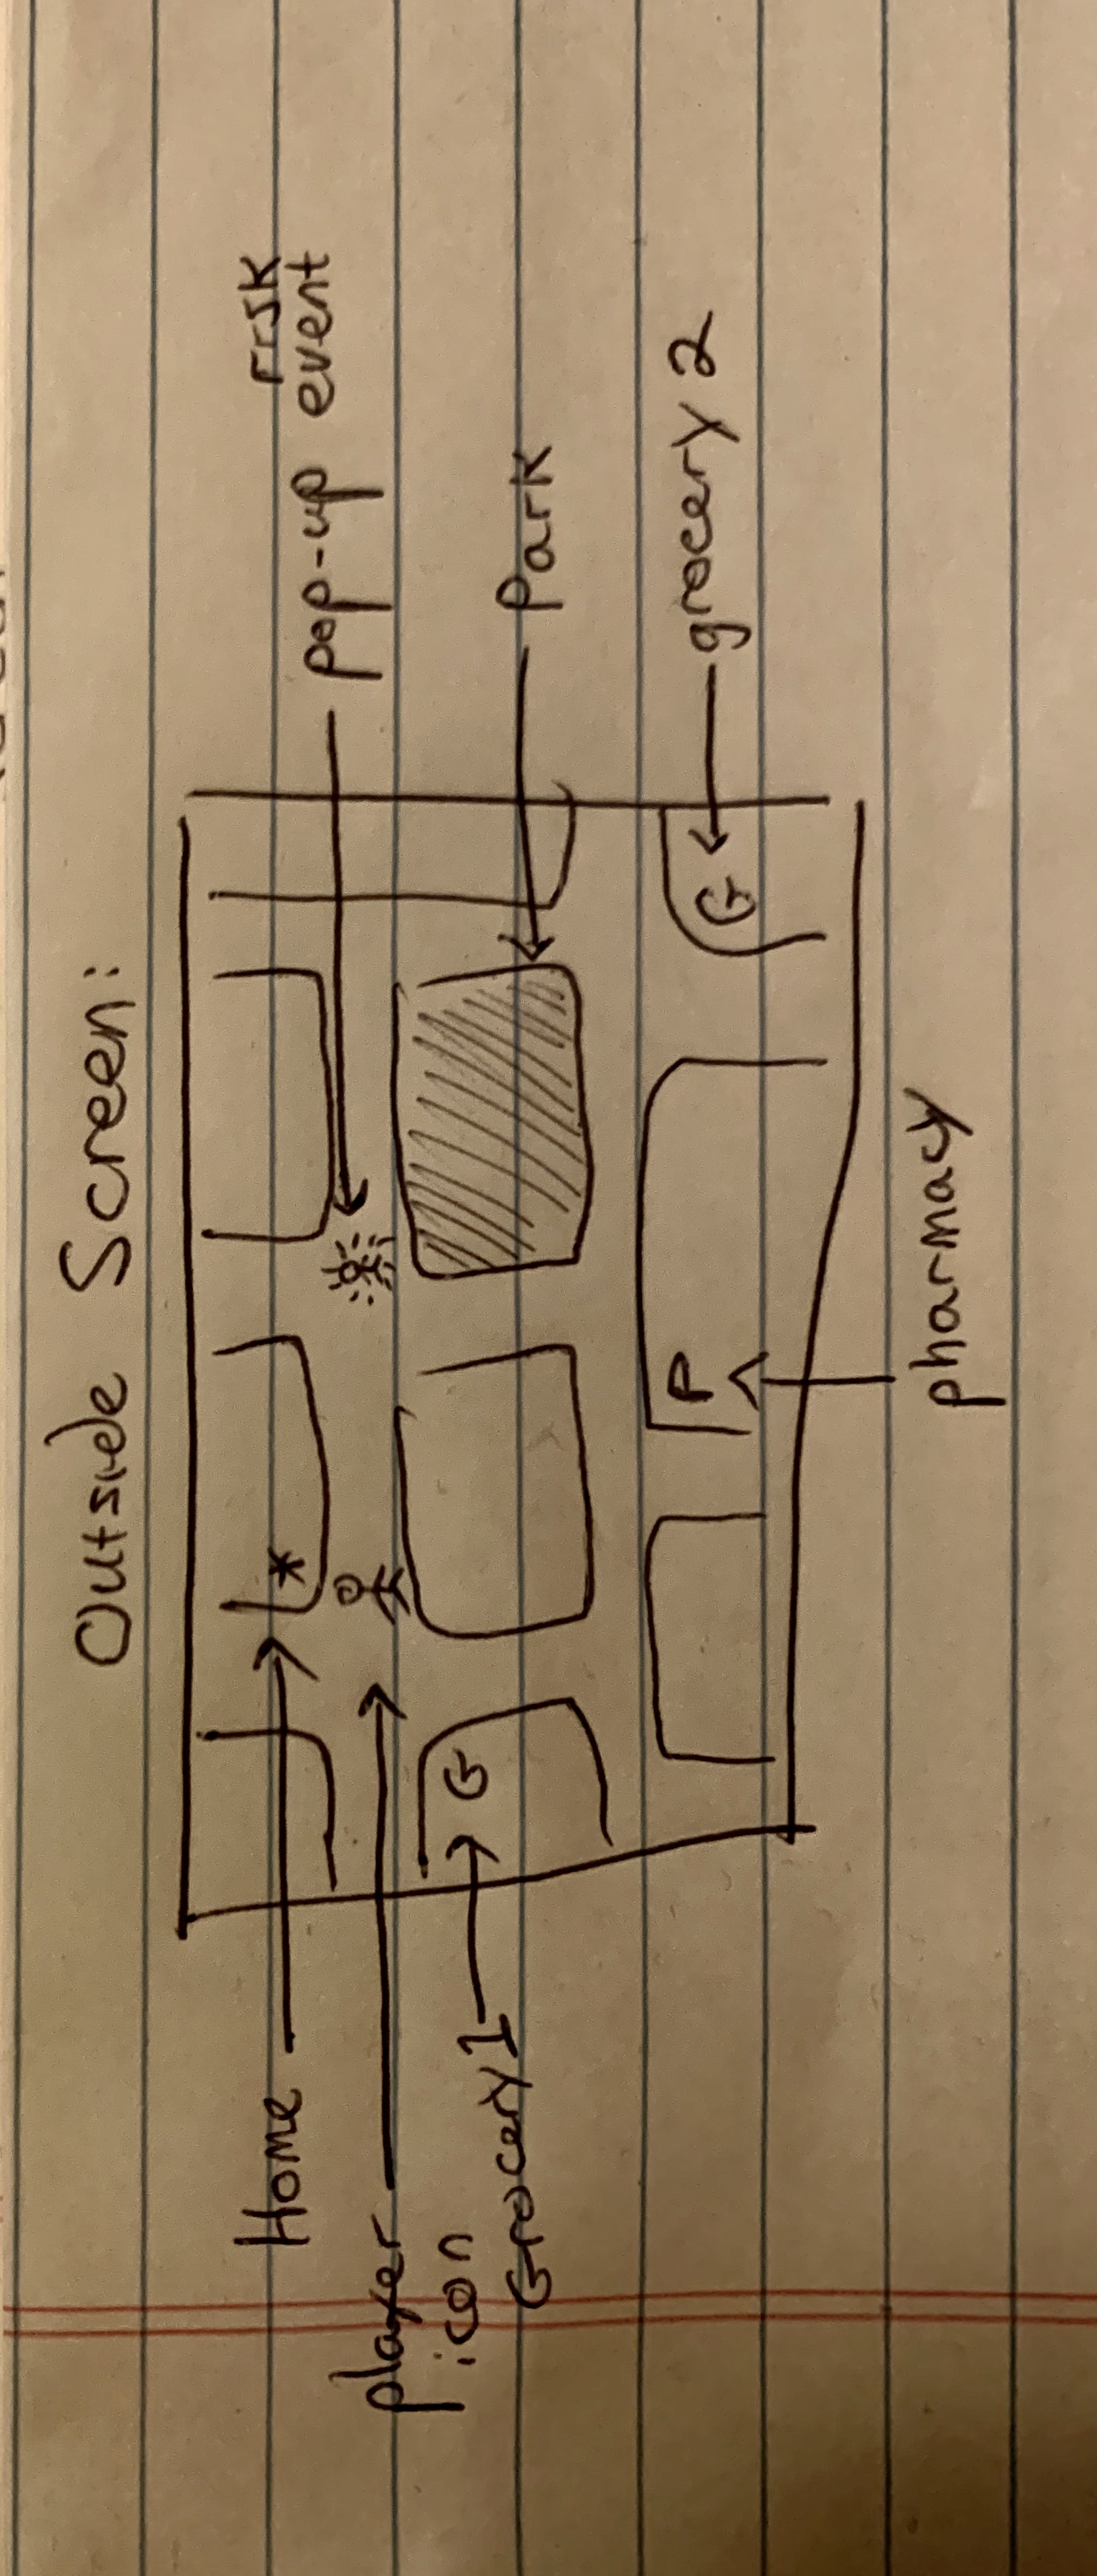 Outside Screen:
Home
player
icon
Grocery 1
*
G
P
G
risk
pop-up event
Park
grocery 2
pharmacy